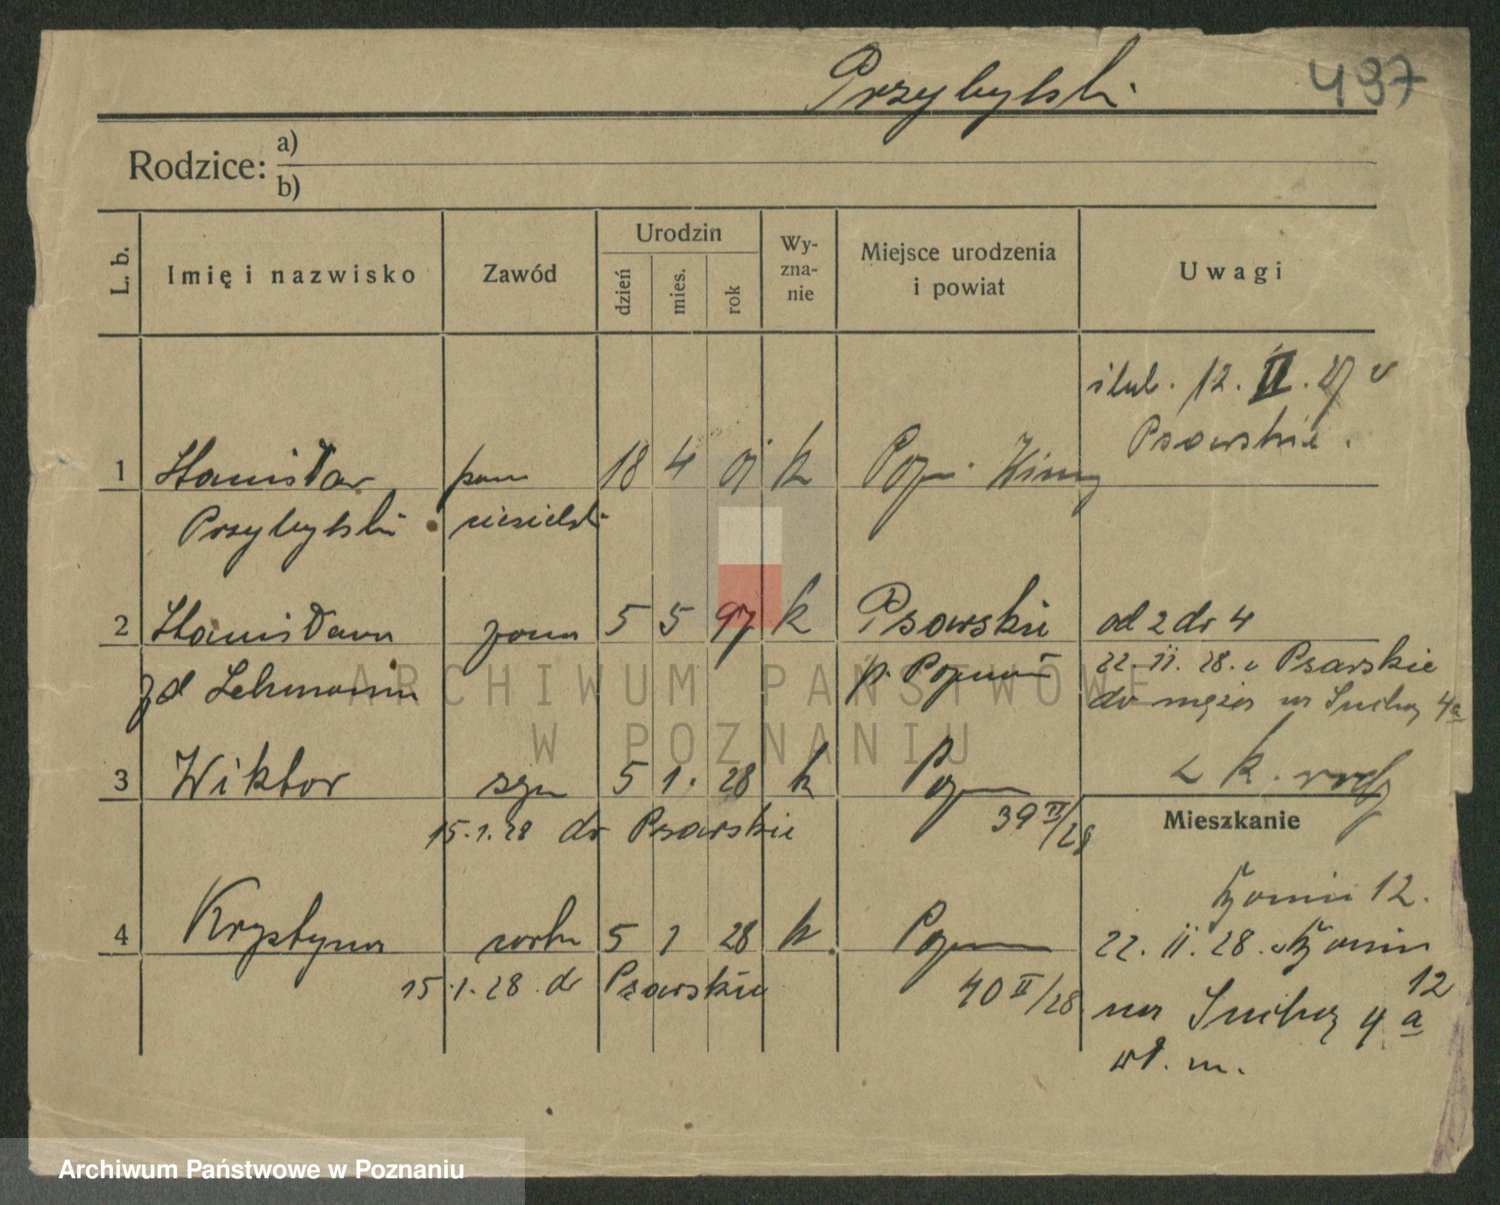 Przybylski 497
Rodzice: a)
b)
L. b. Imię i nazwisko Zawód Urodzin dzień mies. rok Wy-zna-nie Miejsce urodzenia i powiat Uwagi
ślub. 12. II. 27 w
Psarskie.
1 Stanisław 18 4 01 k Pozn.
Przybylski ciesielski
2 Stanisława żona 5 5 97 k Psarskie od 2 do 4
zd Lehmann p. Poznań 22. II. 28. z Psarskie
do męża na Suchą 4a
3 Wiktor syn 5 1. 28 k Pozn z k. rodz
15.1.28 do Psarskie 39 II/28
Mieszkanie
12.
4 Krystyna córka 5 1 28 k. Pozn 22. II. 28. z
15.1.28. do Psarskie 40 II/28 12
na Suchą 4a
wł. m.
ARCHIWUM PAŃSTWOWE
W POZNANIU
Archiwum Państwowe w Poznaniu